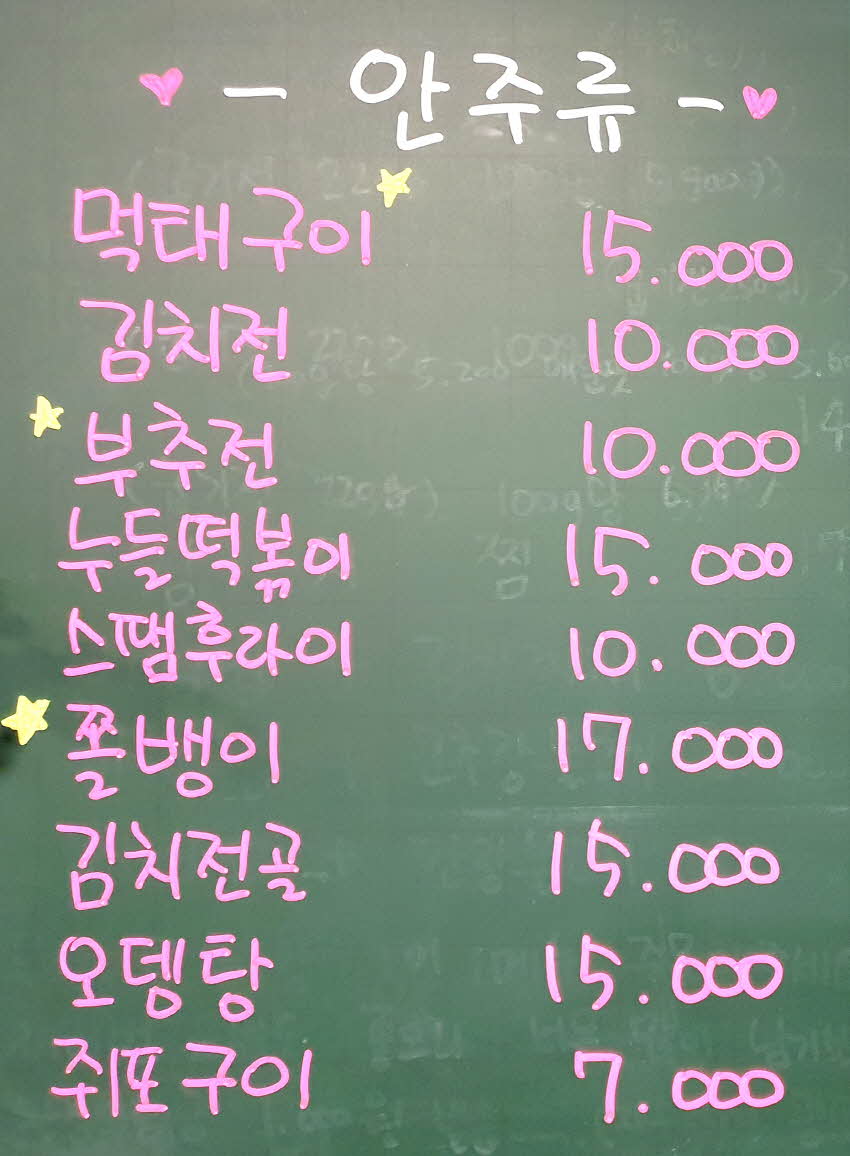 - 안주류 -
먹태구이 15.000
김치전 10.000
부추전 10.000
누들떡볶이 15.000
스팸후라이 10.000
쫄뱅이 17.000
김치전골 15.000
오뎅탕 15.000
쥐포구이 7.000